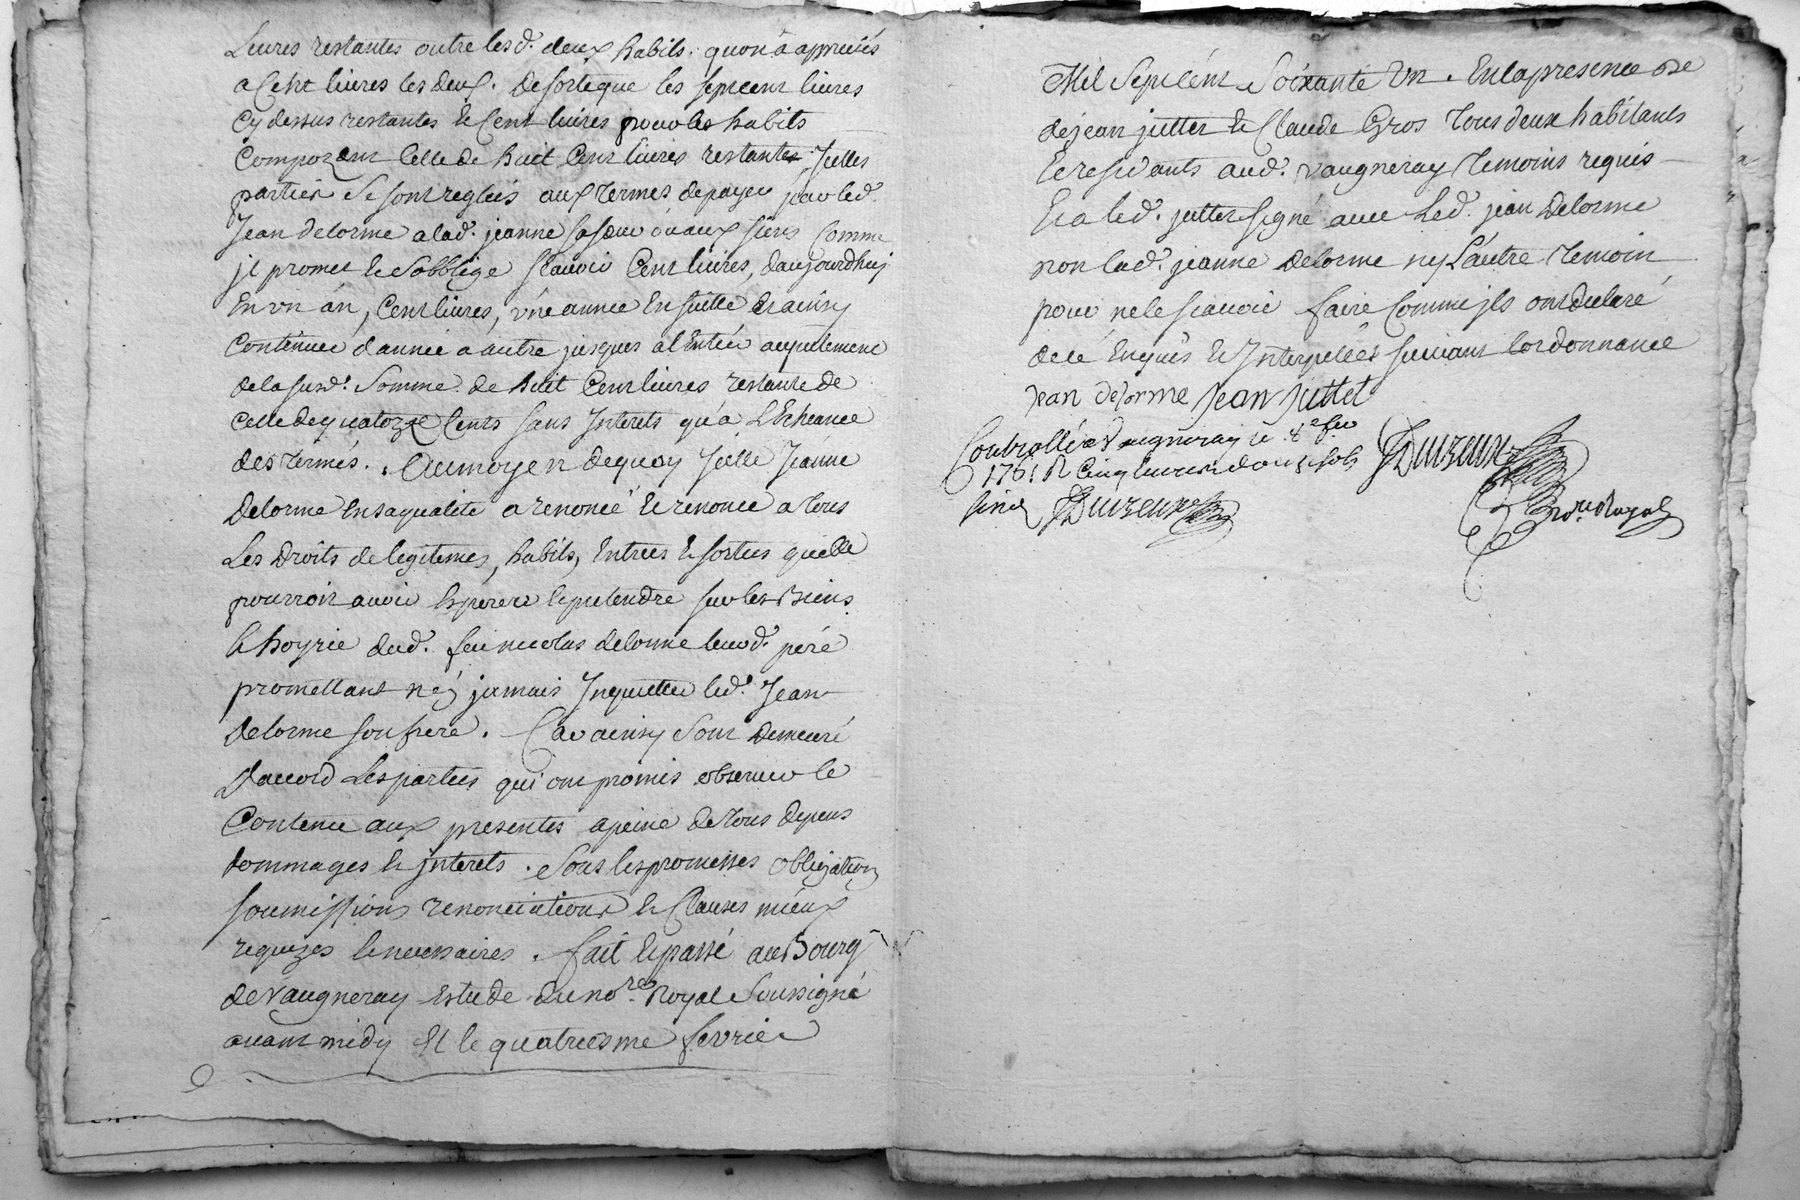 Livres restantes outre lesd. deux habits. quon a appretiés
a Cent livres les deux. de sorteque les septcent livres
Cy dessus restantes & Cent livres pour les habits
Composent Celle de huit Cent livres restantes Jcelles
parties se sont reglées aux termes depayer par led.
Jean delorme alad. jeanne sa sœur ou aux siens Comme
jl promet & soblige scavoir Cent livres, daujourdhuj
En vn an, Cent livres, vne année En suitte & ainsy
Continuer d'année a autre jusques al Entier acquitement
de la susd. Somme de huit Cent livres restante de
Celle de quatorze Cents sans Jnterets qu'a L'Echeance
des termes. Aumoyen dequoy Jcelle Jeanne
Delorme En saqualité a renoncé & renonce a tous
Les Droits de legitimes, habits, Entrées & sorties quelle
pourroit avoir Esperer & pretendre sur les Biens
& hoyrie dud. feu nicolas delorme leurd. peré
promettant n'ej jamais Jnquietter led. Jean
Delorme son frere. Car ainsy sont demeuré
D'accord Les parties qui ont promis observer le
Contenu aux presentes apeine de tous depens
dommages & jnterets. Sous les promesses obligations
soumissions renonciations & Clauses mieux
requizes & necessaires. fait & passé au Bourg
de Vaugneray Estude du nore. Royal Soussigné
avant midy Et le quatriesme fevrier
Mil Septcent Soixante Vn. En la presence de
de jean juttet & Claude Gros tous deux habitants
& residants aud. vaugneray temoins requis
Et a led. juttet signé avec Led. jean Delorme
non lad. jeanne delorme ny L'autre temoin
pour ne le scavoir faire Comme jls ont declaré
de ce Enquis & Jnterpellés suivant lordonnance
Jean delorme Jean Juttet
Controllé a Vaugneray le 4e fev
1761 R Cinq livres douze sols